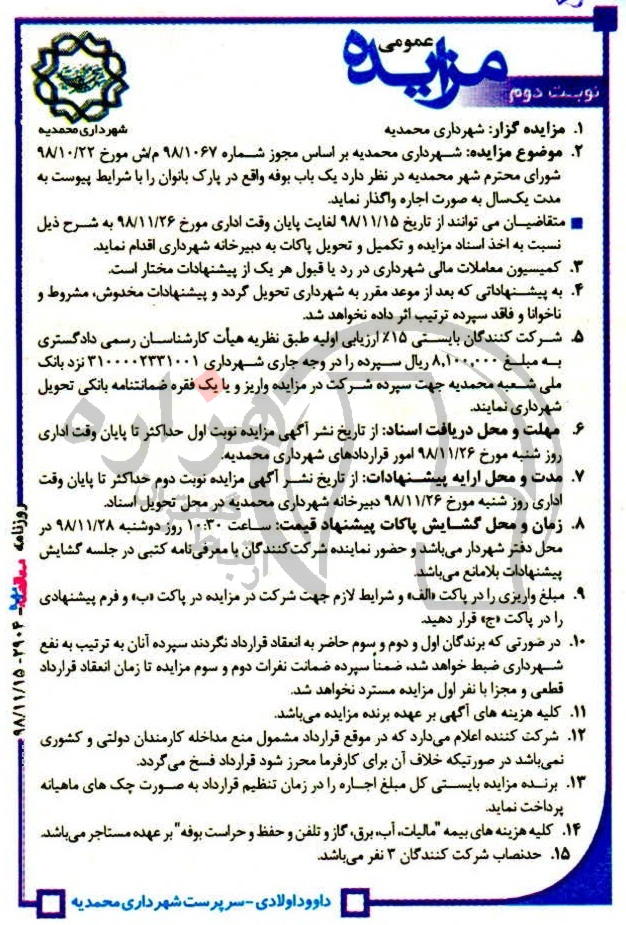 مزایده عمومی
نوبت دوم
شهرداری محمدیه
۱. مزایده گزار: شهرداری محمدیه
۲. موضوع مزایده: شهرداری محمدیه بر اساس مجوز شماره ۹۸/۱۰۶۷ م/ش مورخ ۹۸/۱۰/۲۲
شورای محترم شهر محمدیه در نظر دارد یک باب بوفه واقع در پارک بانوان را با شرایط پیوست به
مدت یک‌سال به صورت اجاره واگذار نماید.
متقاضیان می توانند از تاریخ ۹۸/۱۱/۱۵ لغایت پایان وقت اداری مورخ ۹۸/۱۱/۲۶ به شرح ذیل
نسبت به اخذ اسناد مزایده و تکمیل و تحویل پاکات به دبیرخانه شهرداری اقدام نماید.
۳. کمیسیون معاملات مالی شهرداری در رد یا قبول هر یک از پیشنهادات مختار است.
۴. به پیشنهاداتی که بعد از موعد مقرر به شهرداری تحویل گردد و پیشنهادات مخدوش، مشروط و
ناخوانا و فاقد سپرده ترتیب اثر داده نخواهد شد.
۵. شرکت کنندگان بایستی ۱۵٪ ارزیابی اولیه طبق نظریه هیأت کارشناسان رسمی دادگستری
به مبلغ ۸,۱۰۰,۰۰۰ ریال سپرده را در وجه جاری شهرداری ۳۱۰۰۰۰۲۳۳۱۰۰۱ نزد بانک
ملی شعبه محمدیه جهت سپرده شرکت در مزایده واریز و یا یک فقره ضمانتنامه بانکی تحویل
شهرداری نمایند.
۶. مهلت و محل دریافت اسناد: از تاریخ نشر آگهی مزایده نوبت اول حداکثر تا پایان وقت اداری
روز شنبه مورخ ۹۸/۱۱/۲۶ امور قراردادهای شهرداری محمدیه.
۷. مدت و محل ارایه پیشنهادات: از تاریخ نشر آگهی مزایده نوبت دوم حداکثر تا پایان وقت
اداری روز شنبه مورخ ۹۸/۱۱/۲۶ دبیرخانه شهرداری محمدیه در محل تحویل اسناد.
۸. زمان و محل گشایش پاکات پیشنهاد قیمت: ساعت ۱۰:۳۰ روز دوشنبه ۹۸/۱۱/۲۸ در
محل دفتر شهردار می‌باشد و حضور نماینده شرکت‌کنندگان با معرفی‌نامه کتبی در جلسه گشایش
پیشنهادات بلامانع می‌باشد.
۹. مبلغ واریزی را در پاکت «الف» و شرایط لازم جهت شرکت در مزایده در پاکت «ب» و فرم پیشنهادی
را در پاکت «ج» قرار دهید.
۱۰. در صورتی که برندگان اول و دوم و سوم حاضر به انعقاد قرارداد نگردند سپرده آنان به ترتیب به نفع
شهرداری ضبط خواهد شد، ضمناً سپرده ضمانت نفرات دوم و سوم مزایده تا زمان انعقاد قرارداد
قطعی و مجزا با نفر اول مزایده مسترد نخواهد شد.
۱۱. کلیه هزینه های آگهی بر عهده برنده مزایده می‌باشد.
۱۲. شرکت کننده اعلام می‌دارد که در موقع قرارداد مشمول منع مداخله کارمندان دولتی و کشوری
نمی‌باشد در صورتیکه خلاف آن برای کارفرما محرز شود قرارداد فسخ می‌گردد.
۱۳. برنده مزایده بایستی کل مبلغ اجاره را در زمان تنظیم قرارداد به صورت چک های ماهیانه
پرداخت نماید.
۱۴. کلیه هزینه های بیمه "مالیات، آب، برق، گاز و تلفن و حفظ و حراست بوفه" بر عهده مستاجر می‌باشد.
۱۵. حدنصاب شرکت کنندگان ۳ نفر می‌باشد.
داوود اولادی - سرپرست شهرداری محمدیه
روزنامه
۲۹۰۴ - ۹۸/۱۱/۱۵
هزاره